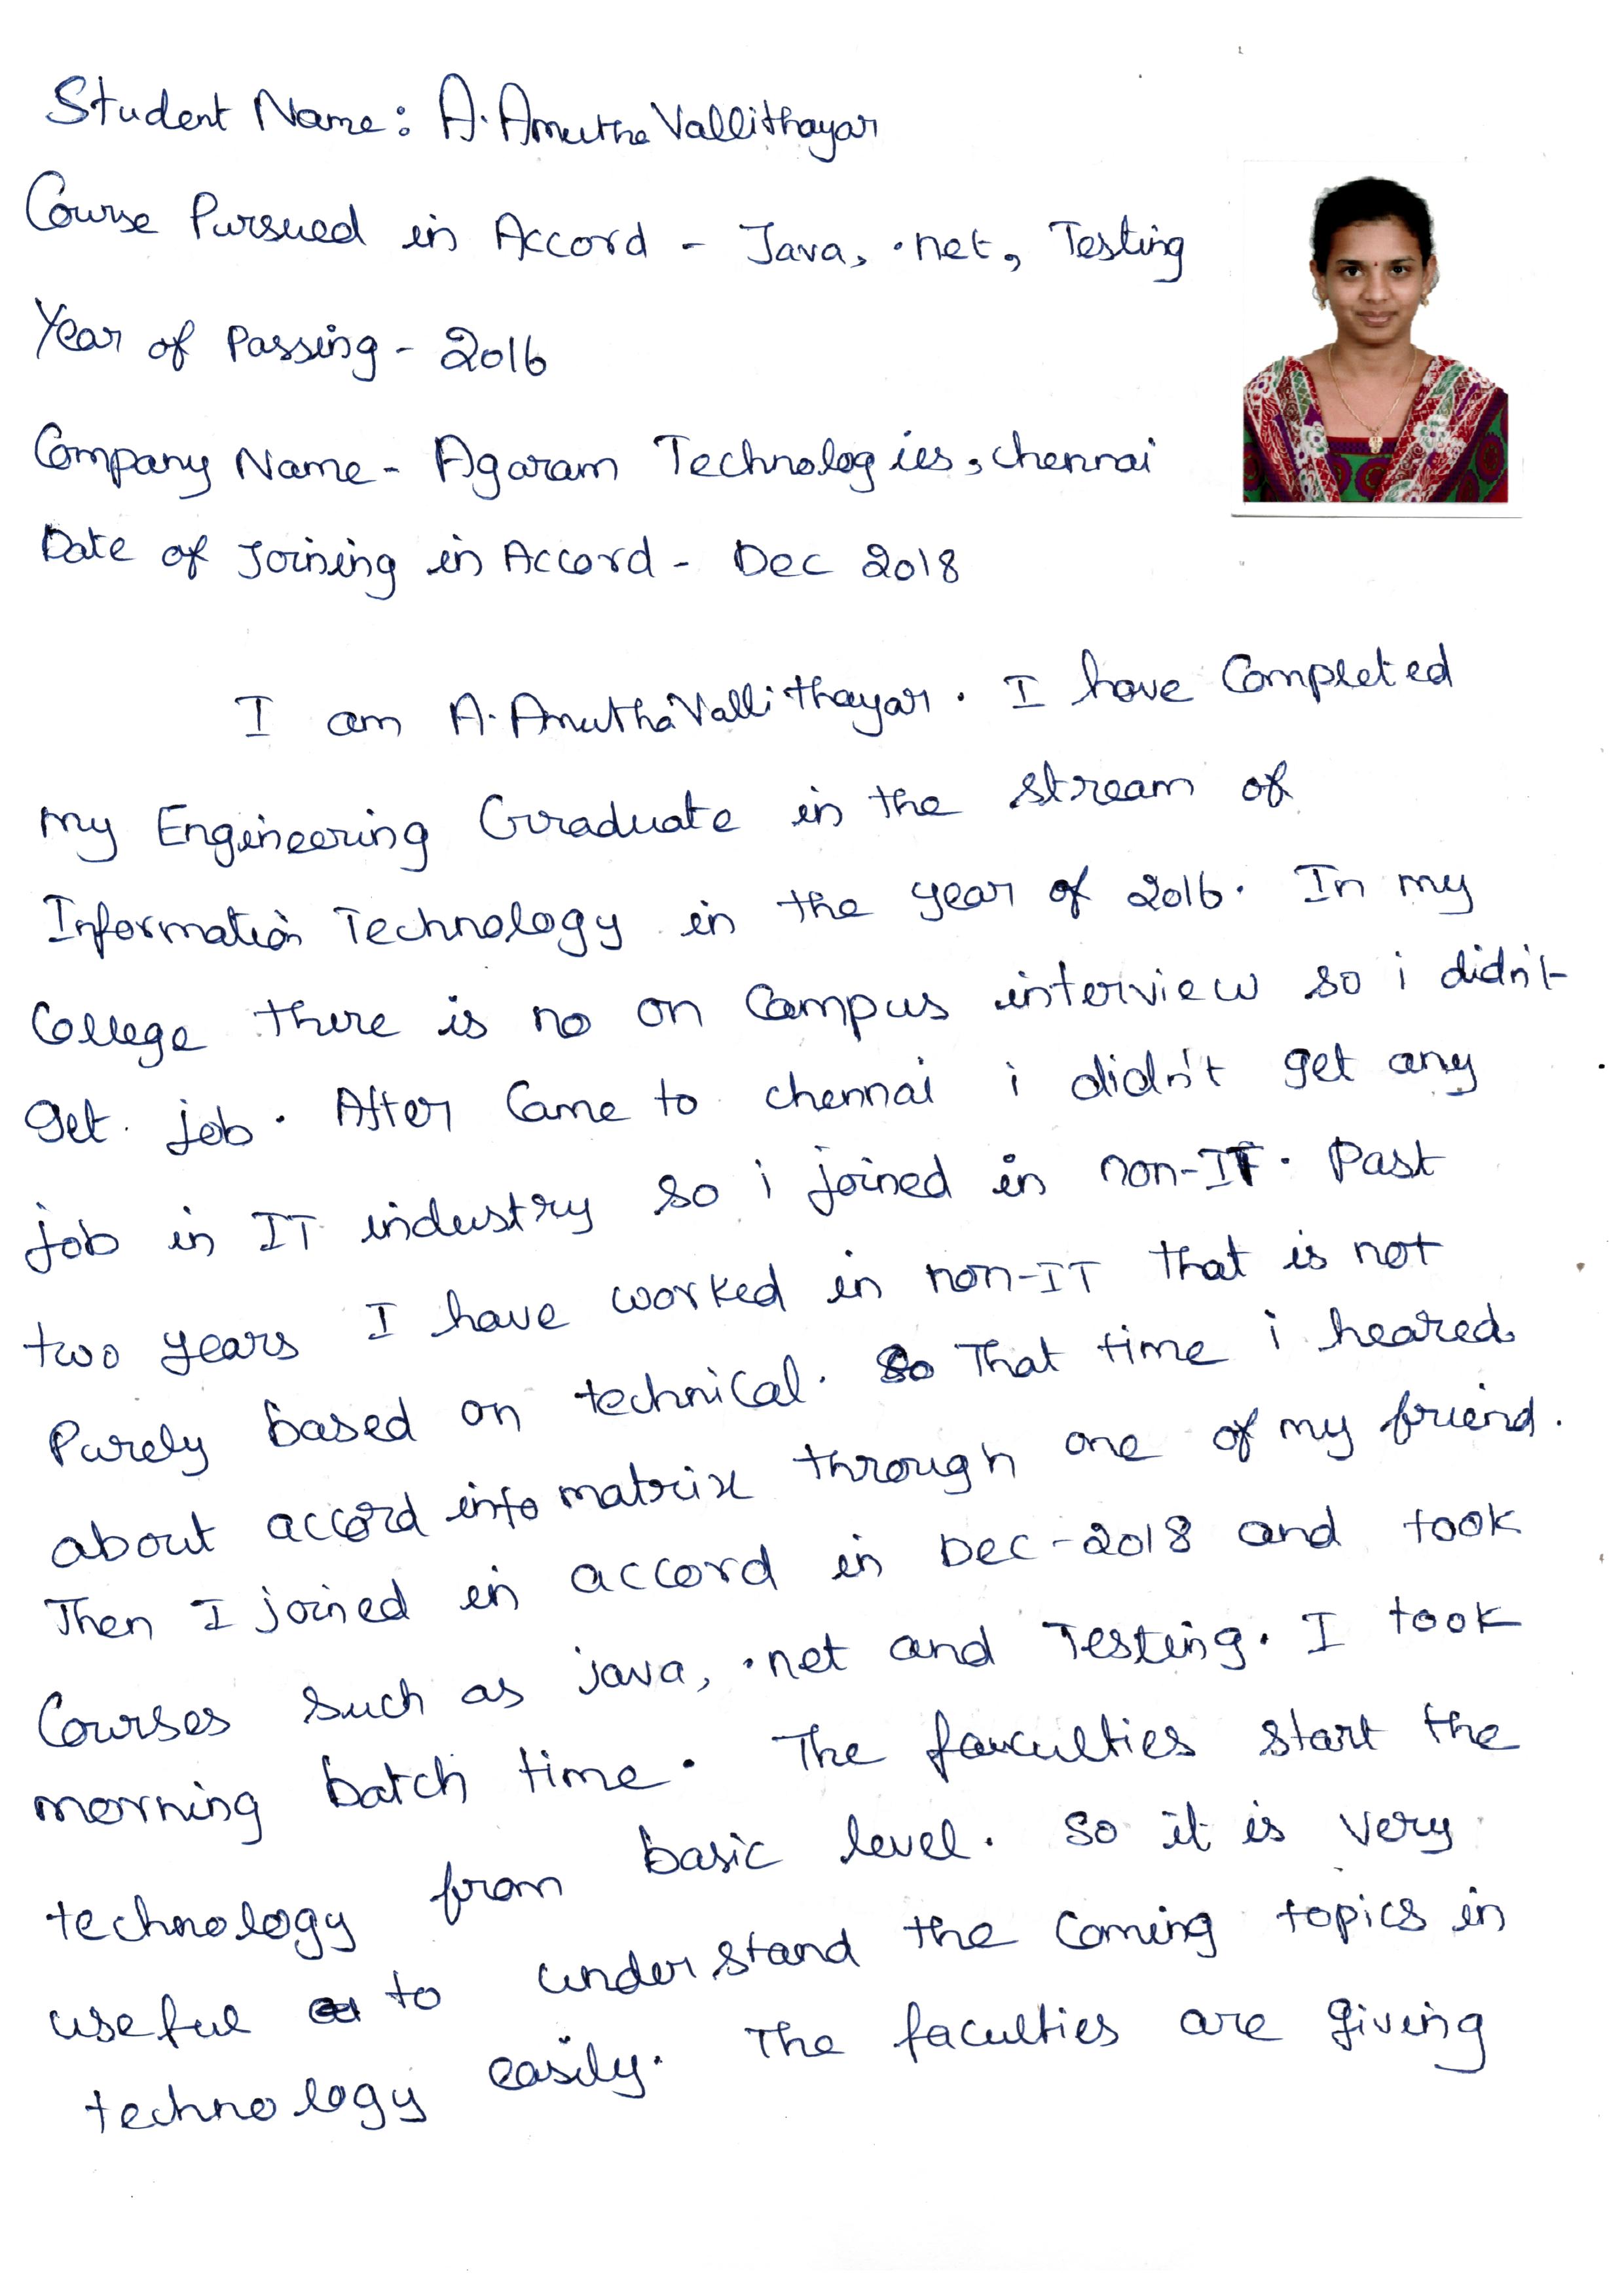 Student Name: A. Amutha Vallithayar
Course Pursued in Accord - Java, .net, Testing
Year of Passing - 2016
Company Name - Agaram Technologies, chennai
Date of Joining in Accord - Dec 2018
I am A. AmuthaVallithayar. I have Completed
my Engineering Graduate in the stream of
Information Technology in the year of 2016. In my
College there is no on Campus interview so i didn't
get job. After Came to chennai i didn't get any
job in IT industry so i joined in non-IT. Past
two years I have worked in non-IT that is not
Purely based on technical. So That time i heared
about accord info matrix through one of my friend.
Then I joined in accord in Dec-2018 and took
Courses such as java, .net and Testing. I took
morning batch time. The faculties start the
technology from basic level. So it is very
useful to understand the Coming topics in
technology easily. The faculties are giving